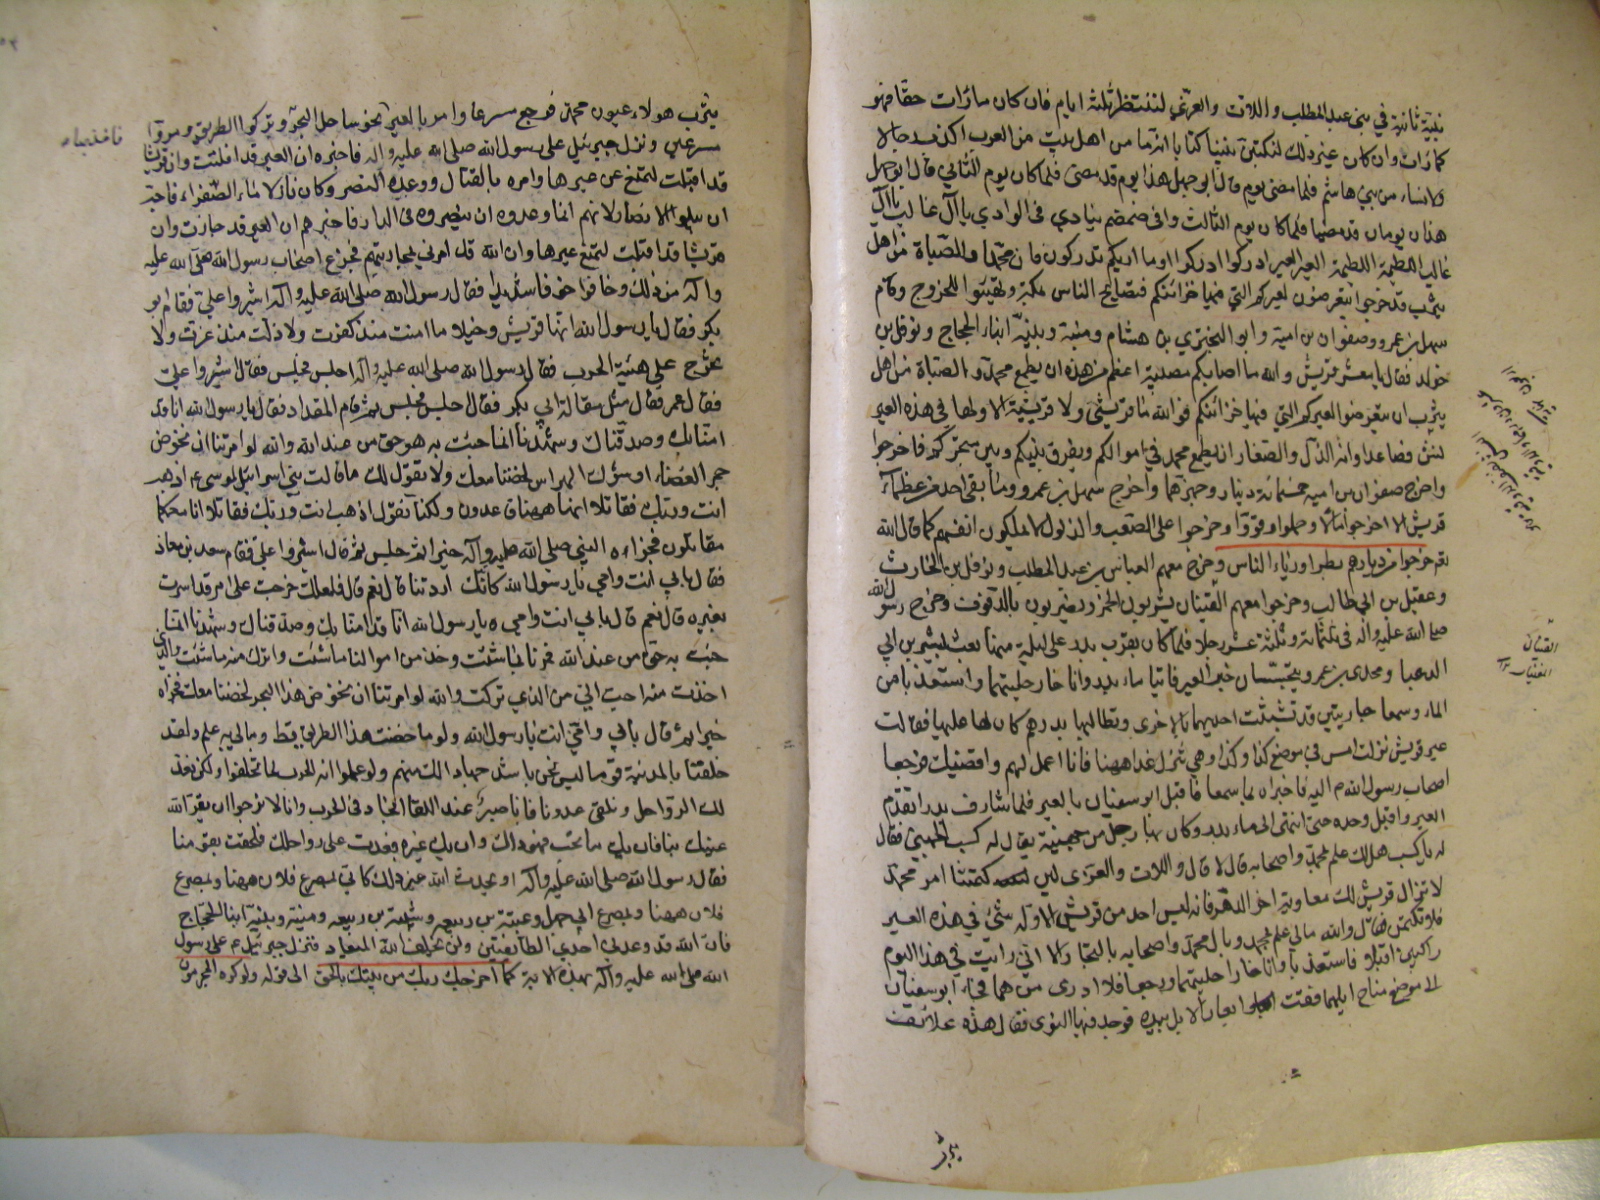 نبية ثانية في بني عبد المطلب واللات والعزى لننتظر ثلثة ايام فان كان ما رات حقا فهو
كما رات وان كان غير ذلك لنكتبن بيننا كتابا انه ما من اهل بيت من العرب اكذب رجالا
ولا نساء من بني هاشم فلما مضى يوم قال ابو جهل هذا يوم قد مضى فلما كان يوم الثاني قال ابو جهل
هذان يومان قد مضيا فلما كان يوم الثالث وافى ضمضم ينادي في الوادي يا آل غالب يا آل
غالب اللطيمة اللطيمة العير العير ادركوا ادركوا وما اريكم تدركون فان محمدا والصباة من اهل
يثرب قد خرجوا يتعرضون لعيركم التي فيها خزائنكم فتصايح الناس بمكة وتهيئوا للخروج وقام
سهل بن عمرو وصفوان بن امية وابو البختري بن هشام ومنبه ونبيه ابنا الحجاج ونوفل بن
خولد فقال يا معشر قريش والله ما اصابكم مصيبة اعظم من هذه ان يطمع محمد والصباة من اهل
يثرب ان يتعرضوا لعيركم التي فيها خزائنكم فوالله ما قرشي ولا قرشية الا ولها في هذه العير
لنش فصاعدا وانه الذل والصغار ان يطمع محمد في اموالكم ويفرق بينكم وبين متجركم فاخرجوا
واخرج صفوان بن امية خمسمائة دينار وجهزهما واخرج سهل بن عمرو وما بقي احد من عظماء
قريش الا اخرجوا مالا وحملوا وقووا وخرجوا على الصعب والذلول لا يملكون انفسهم كما قال الله
تع خرجوا من ديارهم بطرا ورئاء الناس وخرج معهم العباس بن عبد المطلب ونوفل بن الحارث
وعقيل بن ابي طالب وخرجوا معهم القينان يشربون الخمر ويضربون بالدفوف وخرج رسول الله
صلى الله عليه واله في ثلثمائة وثلثة عشر رجلا فلما كان بقرب بدر على ليلة منها بعث بشير بن ابي
الدعبا ومجدى بن عمرو يتجسسان خبر العير فاتيا ماء بدر واناخا راحلتيهما واستعذبا من
الماء وسمعا جاريتين قد تشبثت احديهما بالاخرى وتطالبها بدرهم كان لها عليها فقالت
عير قريش نزلت امس في موضع كذا وكذا وهي تنزل غدا ههنا فانا اعمل لهم واقضيك فرجعا
اصحاب رسول الله ص اليه فاخبراه بما سمعا فاقبل ابو سفيان بالعير فلما شارف بدرا تقدم
العير واقبل وحده حتى انتهى الى ماء بدر وكان بها رجل من جهينة يقال له كسب الجهني فقال
له يا كسب هل لك علم بمحمد واصحابه قال لا قال واللات والعزى لئن كتمتنا امر محمد
لا تزال قريش لك معادية اخر الدهر فانه ليس احد من قريش الا وله شئ في هذه العير
فلا تكتمني فقال والله مالي علم بمحمد وبال محمد واصحابه بالتجار الا اني رايت في هذا اليوم
راكبين اقبلا فاستعذبا واناخا راحلتيهما ورجعا فلا ادري من هما فجاء ابو سفيان
الى موضع مناخ ابلهما ففت ابعار الابل بيده فوجد فيها النوى فقال هذه علائف
القينان
الفتيان
يثرب
يثرب هولاء عيون محمد فرجع مسرعا وامر بالعير نحو ساحل البحر وتركوا الطريق ومروا
مسرعين ونزل جبرئيل على رسول الله صلى الله عليه واله فاخبره ان العير قد افلتت وان قريشا
قد اقبلت لتمنع عن عيرها وامره بالقتال ووعده النصر وكان نازلا ماء الصفراء فاحب
ان يبلوا الانصار لانهم انما وعدوه ان ينصروه في الدار فاخبرهم ان العير قد جازت وان
قريشا قد اقبلت لتمنع عيرها وان الله قد امرني بمحاربتهم فجزع اصحاب رسول الله صلى الله عليه
واله من ذلك وخافوا خوفا شديدا فقال رسول الله صلى الله عليه واله اشيروا علي فقام ابو
بكر فقال يا رسول الله انها قريش وخيلا ما امنت منذ كفرت ولا ذلت منذ عزت ولا
تخرج على هيئة الحرب فقال رسول الله صلى الله عليه واله اجلس فجلس فقال اشيروا علي
فقال عمر فقال مثل مقالة ابي بكر فقال اجلس فجلس ثم قام المقداد فقال يا رسول الله انا قد
امنا بك وصدقناك وشهدنا انما جئت به هو حق من عند الله والله لو امرتنا ان نخوض
جمر الغضاء وشوك الهراس لخضنا معك ولا نقول لك ما قالت بني اسرائيل لموسى ع اذهب
انت وربك فقاتلا انا ههنا قاعدون ولكنا نقول اذهب انت وربك فقاتلا انا معكما
مقاتلون فجزاه النبي صلى الله عليه واله خيرا ثم جلس ثم قال اشيروا علي فقام سعد بن معاذ
فقال بابي انت وامي يا رسول الله كانك اردتنا قال نعم قال فلعلك خرجت على امر قد امرت
بغيره قال نعم قال بابي انت وامي يا رسول الله انا قد امنا بك وصدقناك وشهدنا انما
جئت به حق من عند الله فمرنا بما شئت وخذ من اموالنا ما شئت واترك منه ما شئت والذي
اخذت منه احب الي من الذي تركت والله لو امرتنا ان نخوض هذا البحر لخضنا معك فجزاه
خيرا ثم قال بابي وامي انت يا رسول الله ولو ما خضت هذا الطريق قط ومالي به علم ولقد
خلفنا بالمدينة قوما ليس نحن باشد جهادا لك منهم ولو علموا انه الحرب لما تخلفوا ولكن نعد
لك الرواحل ونلقى عدونا فانا صبر عند اللقا انجاد في الحرب وانا لا نرجوا ان يقر الله
عينيك بنا فان يك ما تحب فهو ذاك وان يك غيره قعدت على رواحلك فلحقت بقومنا
فقال رسول الله صلى الله عليه واله او يحدث الله غير ذلك كاني بمصرع فلان ههنا وبمصرع
فلان ههنا وبمصرع ابي جهل وعتبة بن ربيعه وشيبة بن ربيعه ومنبه ونبيه ابنا الحجاج
فان الله قد وعدني احدى الطائفتين ولن يخلف الله الميعاد فنزل جبرئيل ع على رسول
الله صلى الله عليه واله بهذه الاية كما اخرجك ربك من بيتك بالحق الى قوله ولو كره المجرمون